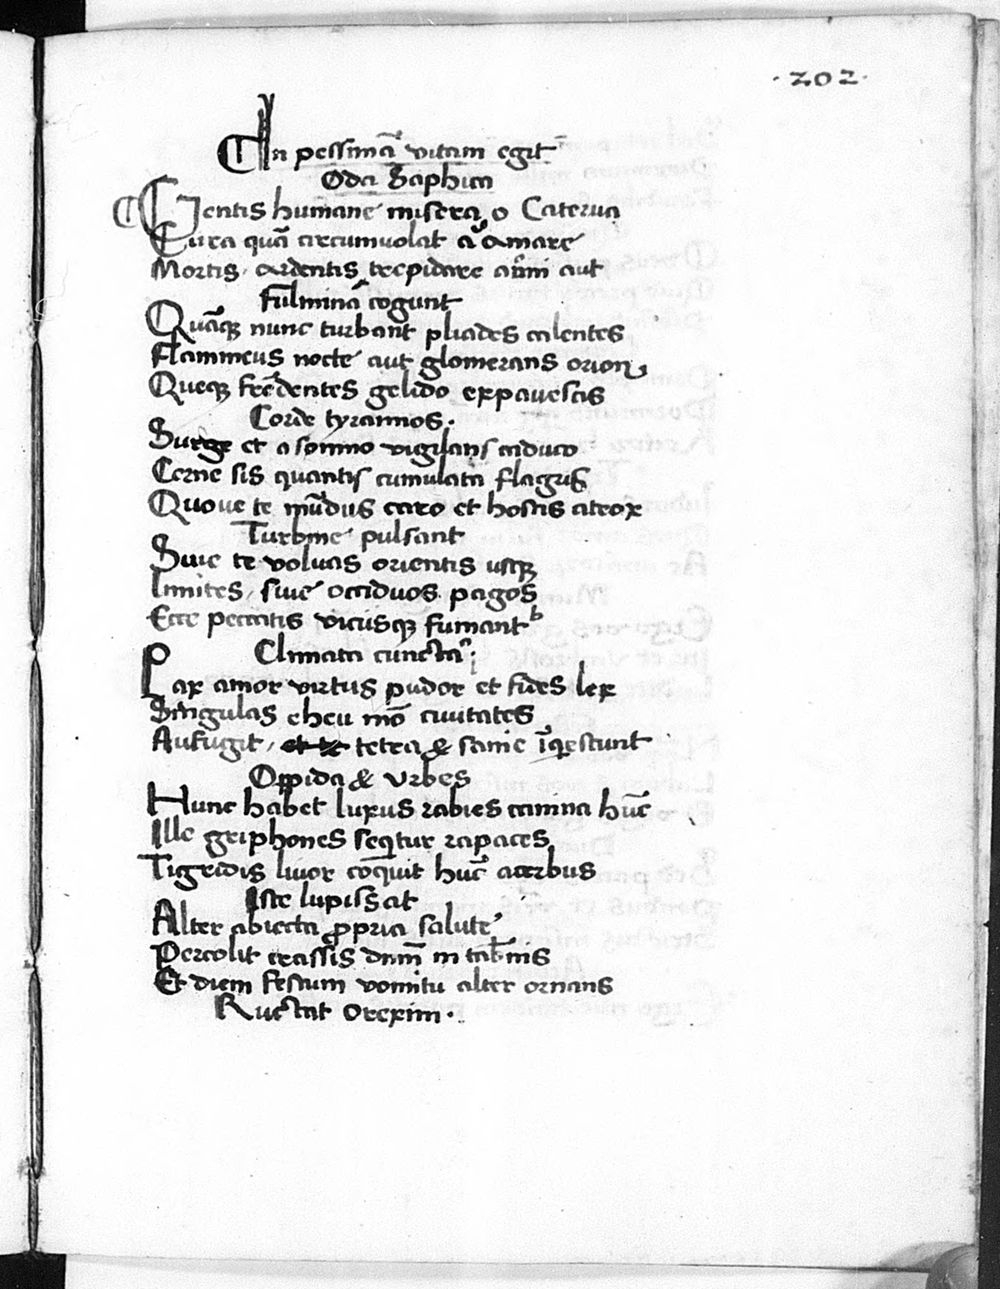 ·202·
In pessimā vitam egit
Oda Saphica
Gentis humane misera o Caterua
Circa quā circumuolat amare
Mortis, ardentis trepidare aīm aut
fulmina cogunt
Quāqꝫ nunc turbant pliades calentes
flammeus nocte aut glomerans orion,
Queqꝫ gelido expauescis
Corde tyrannos.
Surge et a somno vigilans caduco
Cerne sis quantis cumulata flagris
Quoue te mūdus caro et hostis atrox
Turbine pulsant
Siue te voluas orientis usqꝫ
limites, siue occiduos pagos
Ecce peccatis viciisqꝫ fumant b
Climata cuncta a;
Pax amor virtus pudor et fides lex
Singulas eheu mō ciuitates
Aufugit, tetra & sanie īqescunt
Oppida & urbes
Hunc habet luxus rabies canina hūc
Ille griphones seqtur rapaces
Tigridis liuor coquit hūc acerbus
Iste lupissat
Alter abiecta ꝓpria salute
Percolit crassis dnm̄ in tabnis
Et diem festum vomitu alter ornans
Ructat Orexim.